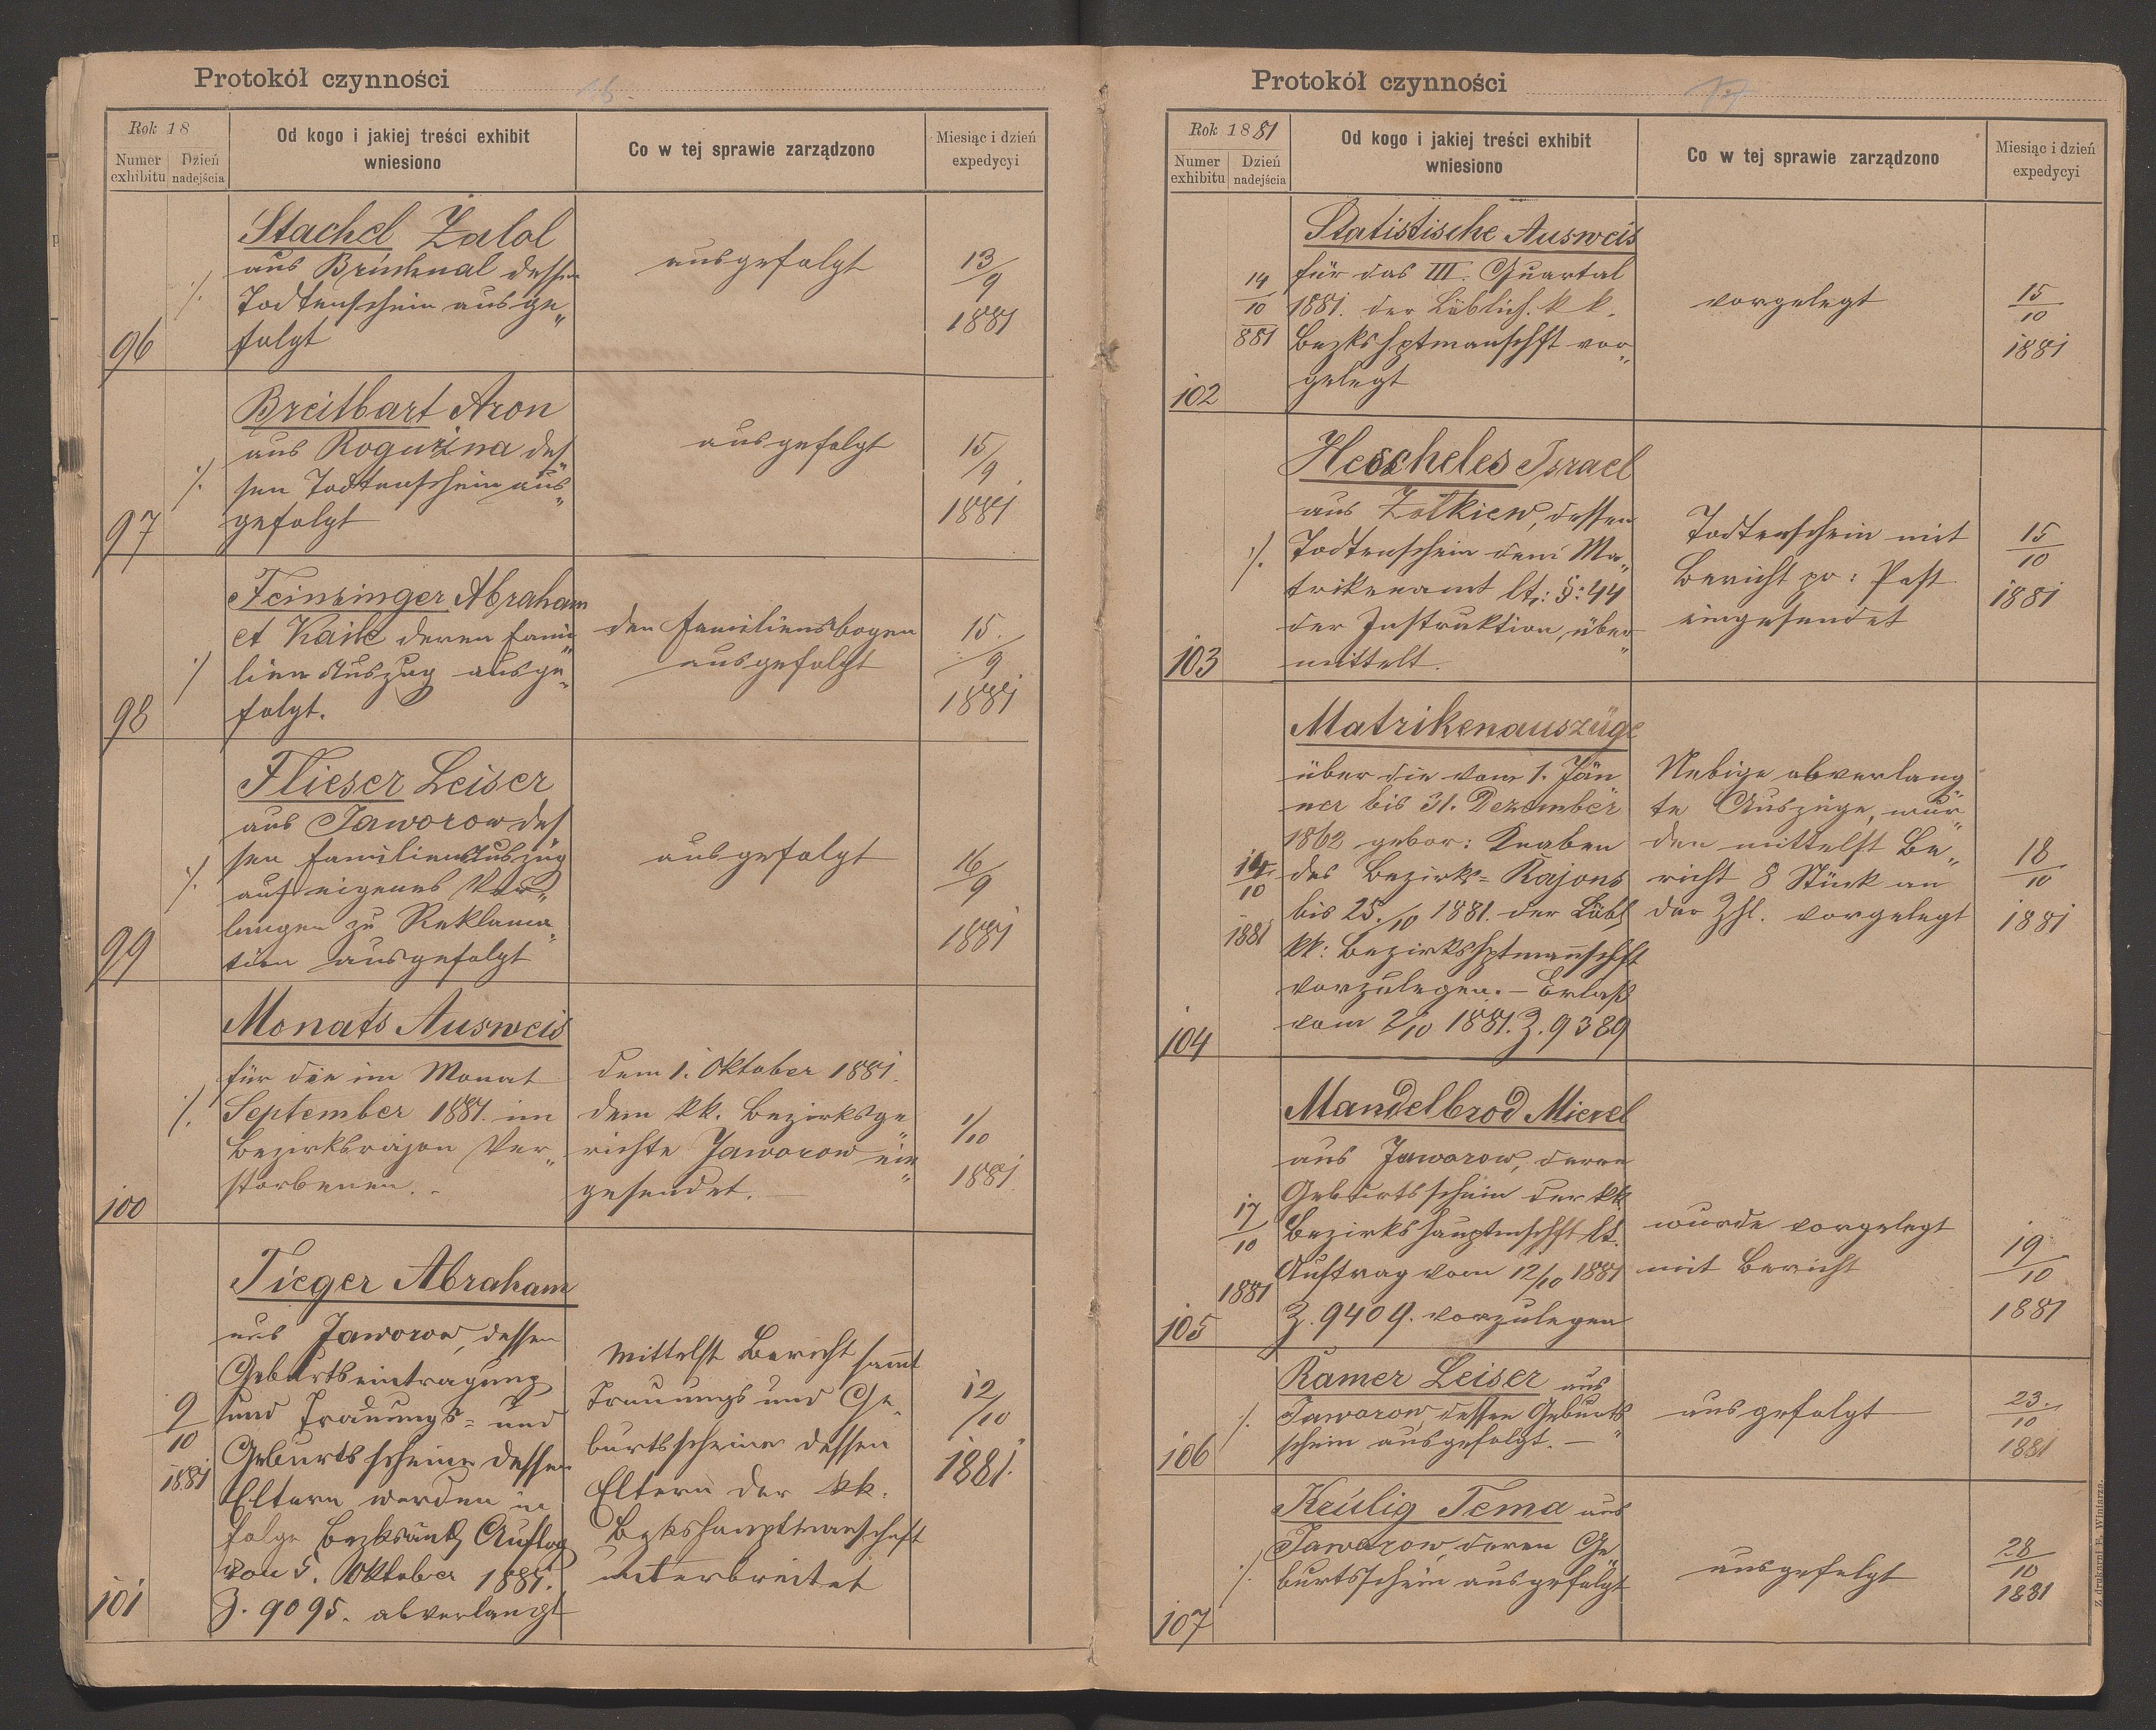 Protokół czynności
16.
Rok 18
Numer exhibitu
Dzień nadejścia
Od kogo i jakiej treści exhibit
wniesiono
Co w tej sprawie zarządzono
Miesiąc i dzień
expedycyi
Stachel Zalel
aus Bruchnal dessen
Todtenschein ausge„
folgt
96
./.
ausgefolgt
13/9
1881
Breitbart Aron
aus Roguźna des
sen Todtenschein aus„
gefolgt
97
./.
ausgefolgt
15/9
1881
Feinsinger Abraham
et Kaile deren Fami„
lien Auszug ausge„
folgt.
98
./.
den Familiensbogen
ausgefolgt
15./9
1881
Flieser Leiser
aus Jaworow des
sen Familien Auszug
auf eigenes Ver„
langen zu Reklama„
tion ausgefolgt
99
./.
ausgefolgt
16/9
1881
Monats Ausweis
für die im Monat
September 1881. im
Bezirksrajon Ver„
storbenen.
100
./.
dem 1. Oktober 1881.
dem kk. Bezirksge„
richte Jaworow ein„
gesendet.
1/10
1881
Tieger Abraham
aus Jaworow, dessen
Geburtseintragung
und Trauungs= und
Geburtsscheine dessen
Eltern werden in
folge Auftrag
vom 5. Oktober 1881.
Z. 9095. abverlangt
101
9/10
1881
Mittelst Bericht sammt
Trauungs und Ge„
burtsscheine dessen
Eltern der kk.
Bzkshauptmanschaft
unterbreitet
12/10
1881.
Protokół czynności
17
Rok 1881
Numer exhibitu
Dzień nadejścia
Od kogo i jakiej treści exhibit
wniesiono
Co w tej sprawie zarządzono
Miesiąc i dzień
expedycyi
Statistische Ausweis
für das III. Quartal
1881. der Löblich. k k.
Bezkshptmanschft vor„
gelegt
102
14/10
881
vorgelegt
15/10
1881
Hescheles Israel
aus Zolkiew, dessen
Todtenschein dem Ma„
trikenamt lt: §: 44
der Instruktion, über„
mittelt.
103
./.
Todtenschein mit
Bericht pr: Post
eingesendet
15/10
1881
Matrikenauszüge
über die vom 1. Jän
ner bis 31. Dezember
1862 gebor: Knaben
des Bezirks= Rajons
bis 25./10 1881. der Löbl
kk: Bezirkshptmannschft
vorzulegen. – Erlaß
vom 2/10 1881. Z. 9389
104
14/10
1881
Nebige abverlang„
te Auszüge, wur„
den mittelst Be„
richt 8 Stück an
der Zhl. vorgelegt
18/10
1881
Mandelbrod Mierel
aus Jaworow, deren
Geburtsschein der kk
Bezirkshauptmschft lt.
Auftrag vom 12/10 1881
Z. 9409. vorzulegen
105
17/10
1881
wurde vorgelegt
mit Bericht
19/10
1881
Ramer Leiser aus
Jaworow, dessen Geburts„
schein ausgefolgt. –
106
./.
ausgefolgt
23./10
1881
Keülig Tema aus
Jaworow, deren Ge„
burtsschein ausgefolgt
107
./.
ausgefolgt
28/10
1881
Z drukarni E. Winiarza.